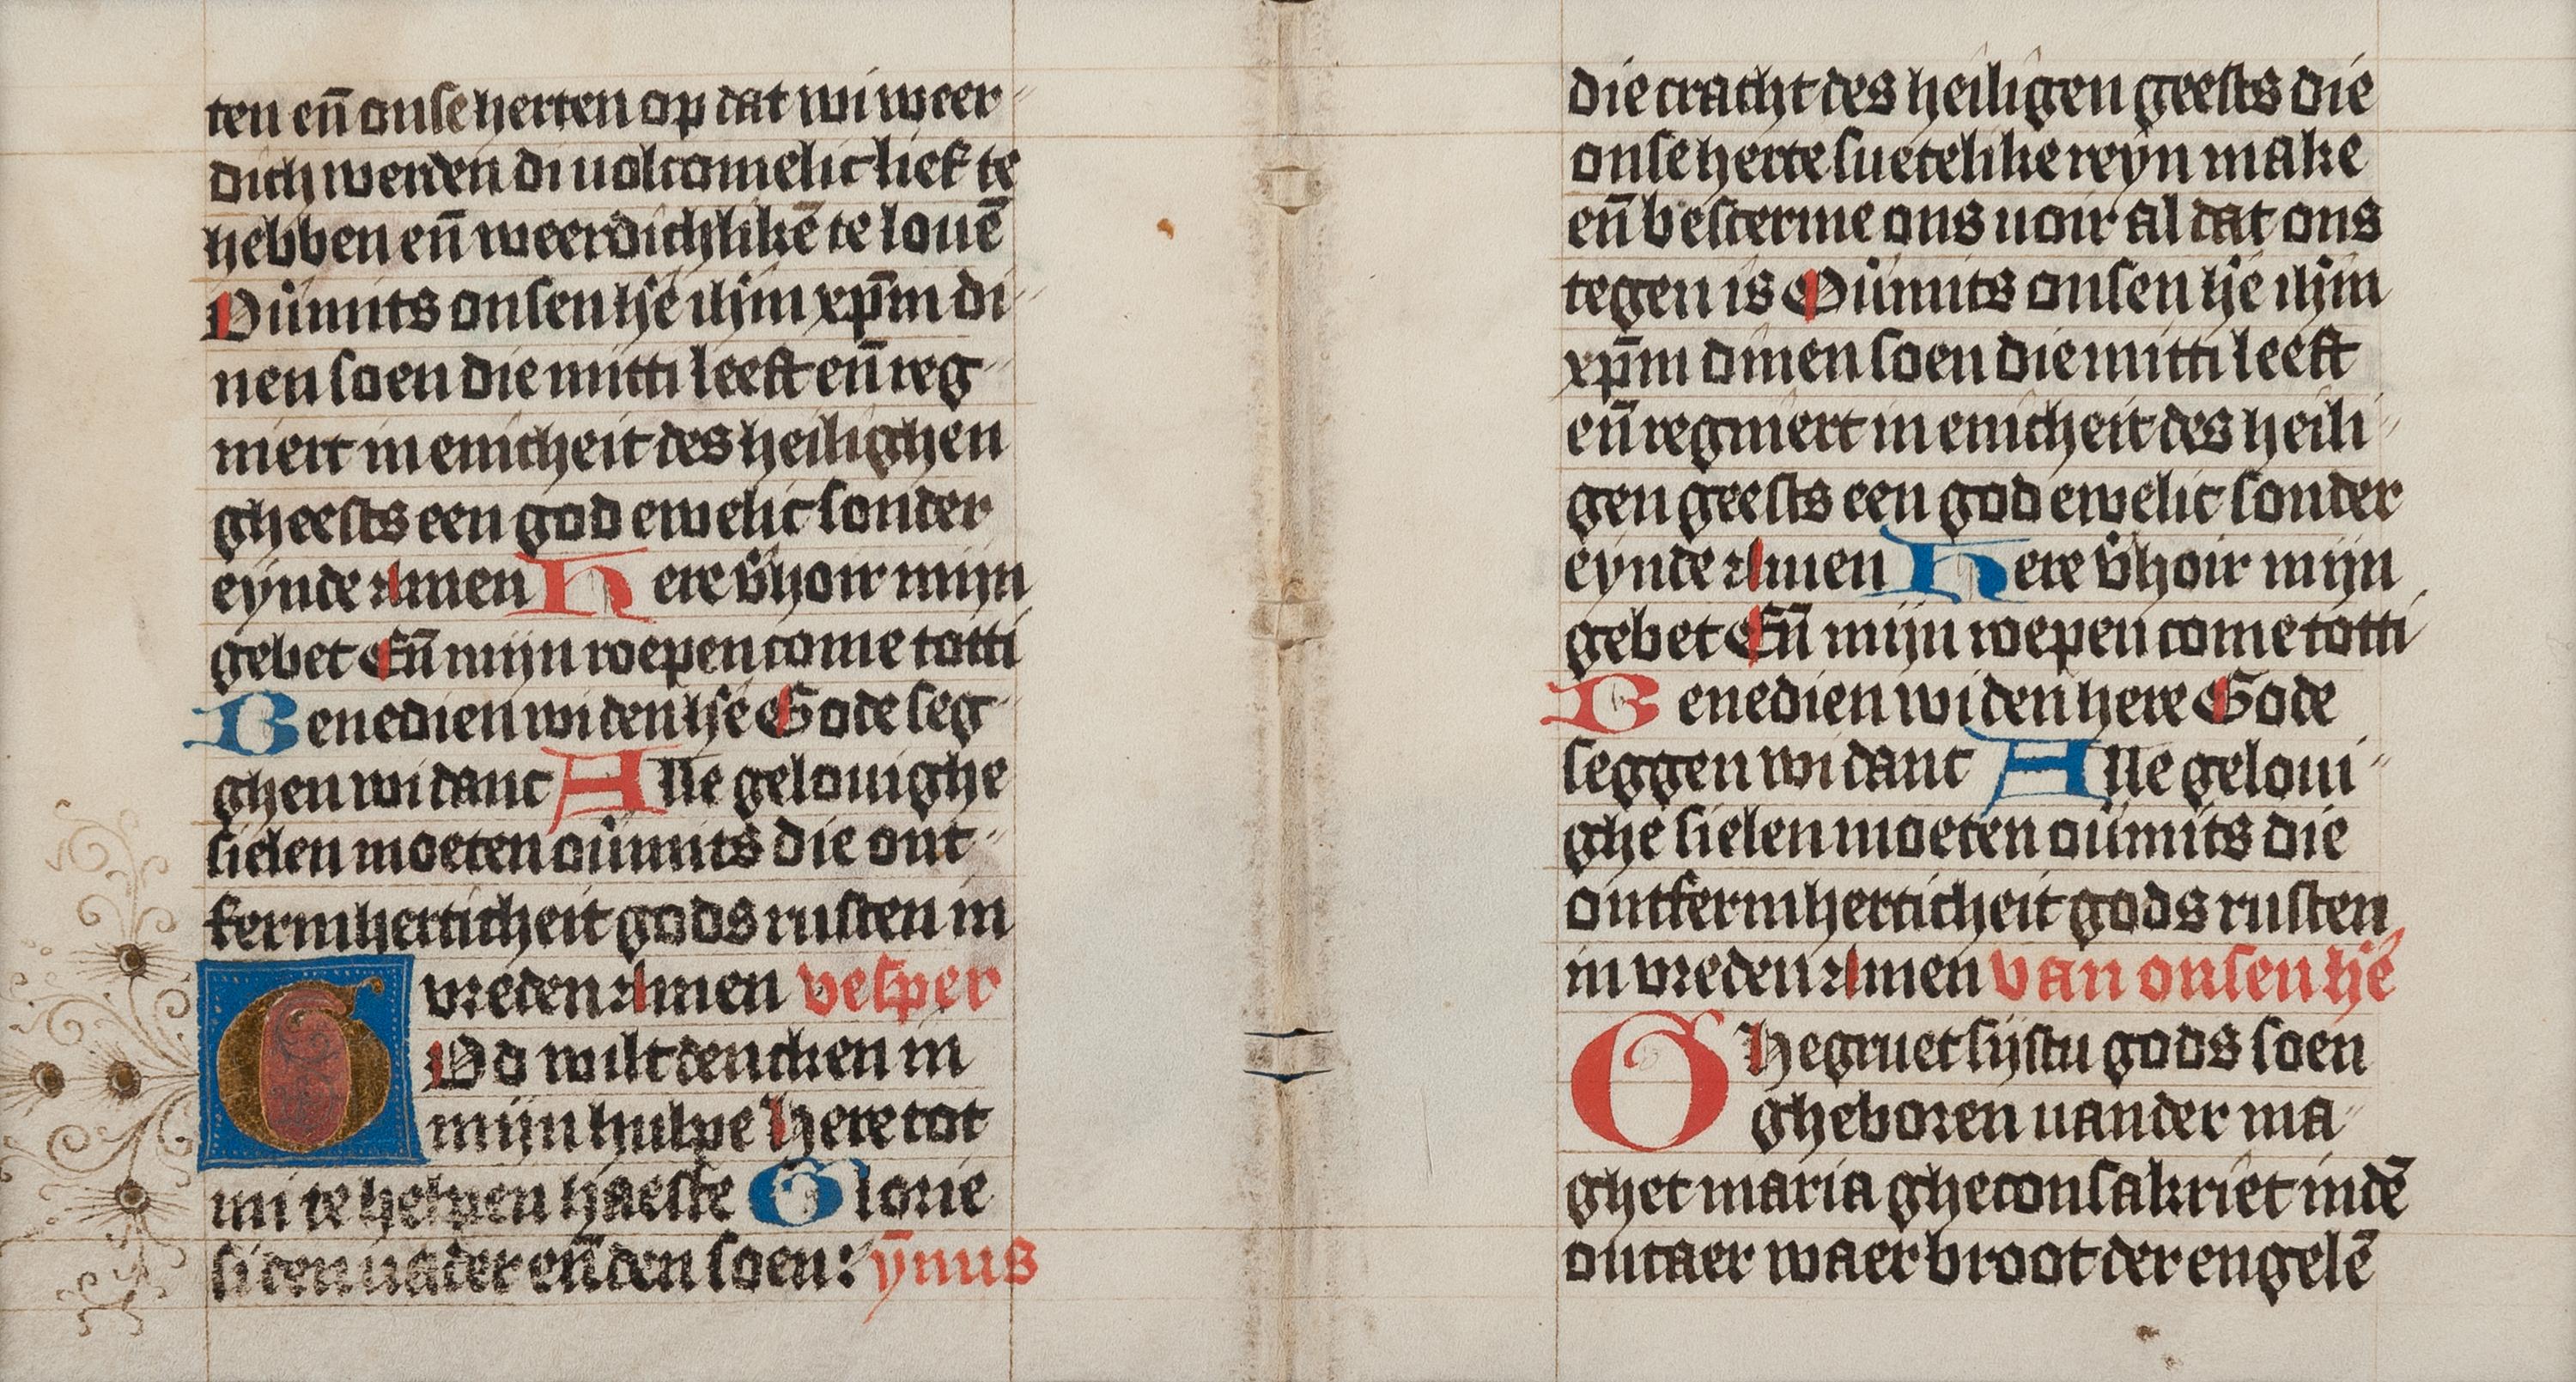 ten en̄ onse herten op dat wi weer
dich werden di uolcomelic lief te
hebben en̄ weerdichlikē te louē
Ou̾mits onsen h̾e ih̄m xp̄m di
nen soen die mitti leeft en̄ reg
niert in enicheit des heilighen
gheests een god ewelic sonder
eynde Amen Here v̾hoir mijn
gebet En̄ mijn roepen come totti
Benedien wi den h̾e Gode seg
ghen wi danc Alle gelouighe
sielen moeten ou̾mits die ont
fermherticheit gods rusten in
vreden Amen vesper
God wilt dencken in
mijn hulpe Here tot
mi te helpen haeste Glorie
si den uader en̄ den soen: ȳnus
die cracht des heiligen geests die
onse herte suetelike reyn make
en̄ bescerme ons uoir al dat ons
tegen is Ou̾mits onsen h̾e ih̄m
xp̄m dinen soen die mitti leeft
en̄ regniert in enicheit des heili
gen geests een god ewelic sonder
eynde Amen Here v̾hoir mijn
gebet En̄ mijn roepen come totti
Benedien wi den here Gode
seggen wi danc Alle geloui
ghe sielen moeten ou̾mits die
ontfermherticheit gods rusten
in vreden Amen van onsen h̾e
Ghegruet sijstu gods soen
gheboren uander ma
ghet maria gheconsakriet indē
outaer waer broot der engelē